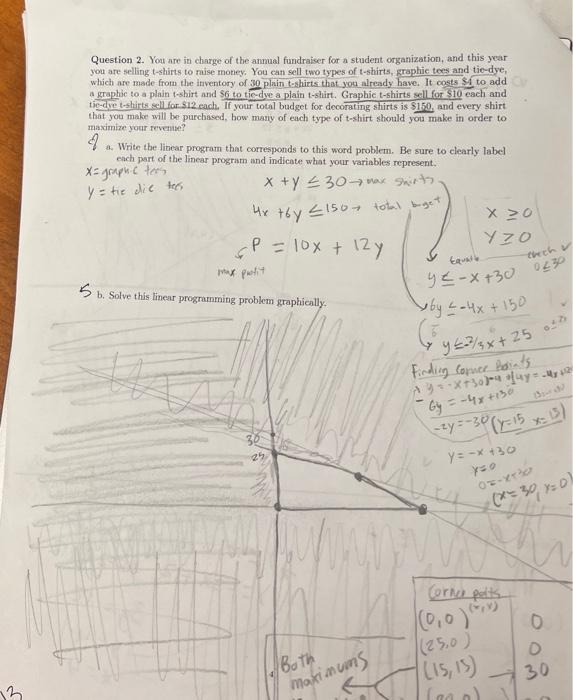 Question 2. You are in charge of the annual fundraiser for a student organization, and this year
you are selling t-shirts to raise money. You can sell two types of t-shirts, graphic tees and tie-dye,
which are made from the inventory of 30 plain t-shirts that you already have. It costs $4 to add
a graphic to a plain t-shirt and $6 to tie-dye a plain t-shirt. Graphic t-shirts sell for $10 each and
tie-dye t-shirts sell for $12 each. If your total budget for decorating shirts is $150, and every shirt
that you make will be purchased, how many of each type of t-shirt should you make in order to
maximize your revenue?
a. Write the linear program that corresponds to this word problem. Be sure to clearly label
each part of the linear program and indicate what your variables represent.
x = graphic tees
y = tie die tees
x + y ≤ 30 → max shirts
4x + 6y ≤ 150 → total
x ≥ 0
y ≥ 0
P = 10x + 12y
max profit
check ✓
0 ≤ 30
y ≤ -x + 30
5 b. Solve this linear programming problem graphically.
6y ≤ -4x + 150
6
y ≤ -2/3x + 25
Finding Corner Points
y = -x + 30
6y = -4x + 150
-2y = -30 (y=15 x=15)
y = -x + 30
y=0
0 = -x + 30
(x=30, y=0)
30
25
Corner
(x,y)
(0,0) 0
(25,0) 0
(15,15) → 30
Both
maximums
13